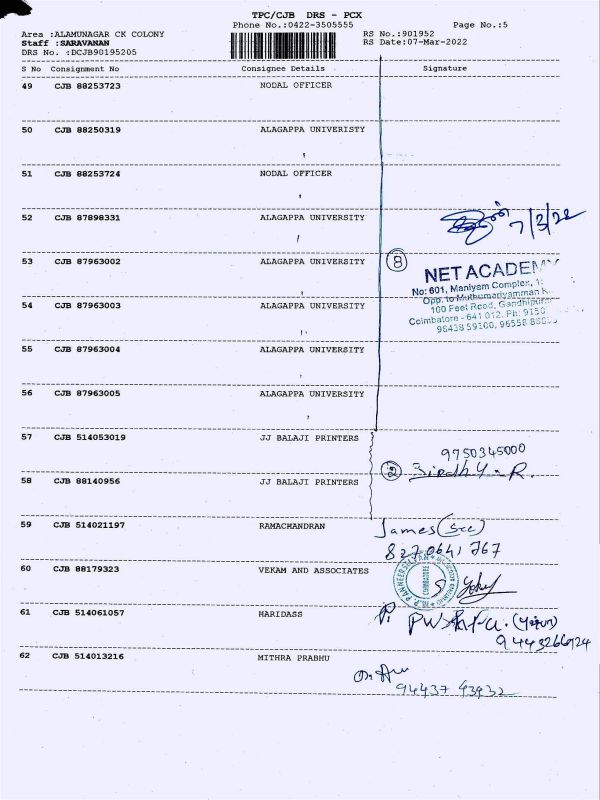 TPC/CJB DRS - PCX
Phone No.:0422-3505555 Page No.:5
Area :ALAMUNAGAR CK COLONY RS No.:901952
Staff :SARAVANAN RS Date:07-Mar-2022
DRS No. :DCJB90195205
S No Consignment No Consignee Details Signature
49 CJB 88253723 NODAL OFFICER
50 CJB 88250319 ALAGAPPA UNIVERISTY
51 CJB 88253724 NODAL OFFICER
52 CJB 87898331 ALAGAPPA UNIVERSITY
7/3/22
53 CJB 87963002 ALAGAPPA UNIVERSITY
8
NET ACADEMY
No: 601, Maniyam Complex,
Opp. to Muthumariyamman
54 CJB 87963003 ALAGAPPA UNIVERSITY
100 Feet Road, Gandhipur
Coimbatore - 641 012. Ph: 9150
96438 59100, 96558
55 CJB 87963004 ALAGAPPA UNIVERSITY
56 CJB 87963005 ALAGAPPA UNIVERSITY
57 CJB 514053019 JJ BALAJI PRINTERS
9750345000
2
58 CJB 88140956 JJ BALAJI PRINTERS
59 CJB 514021197 RAMACHANDRAN
James
8270641767
60 CJB 88179323 VEKAM AND ASSOCIATES
COIMBATORE
61 CJB 514061057 HARIDASS
9443266924
62 CJB 514013216 MITHRA PRABHU
94437 43932